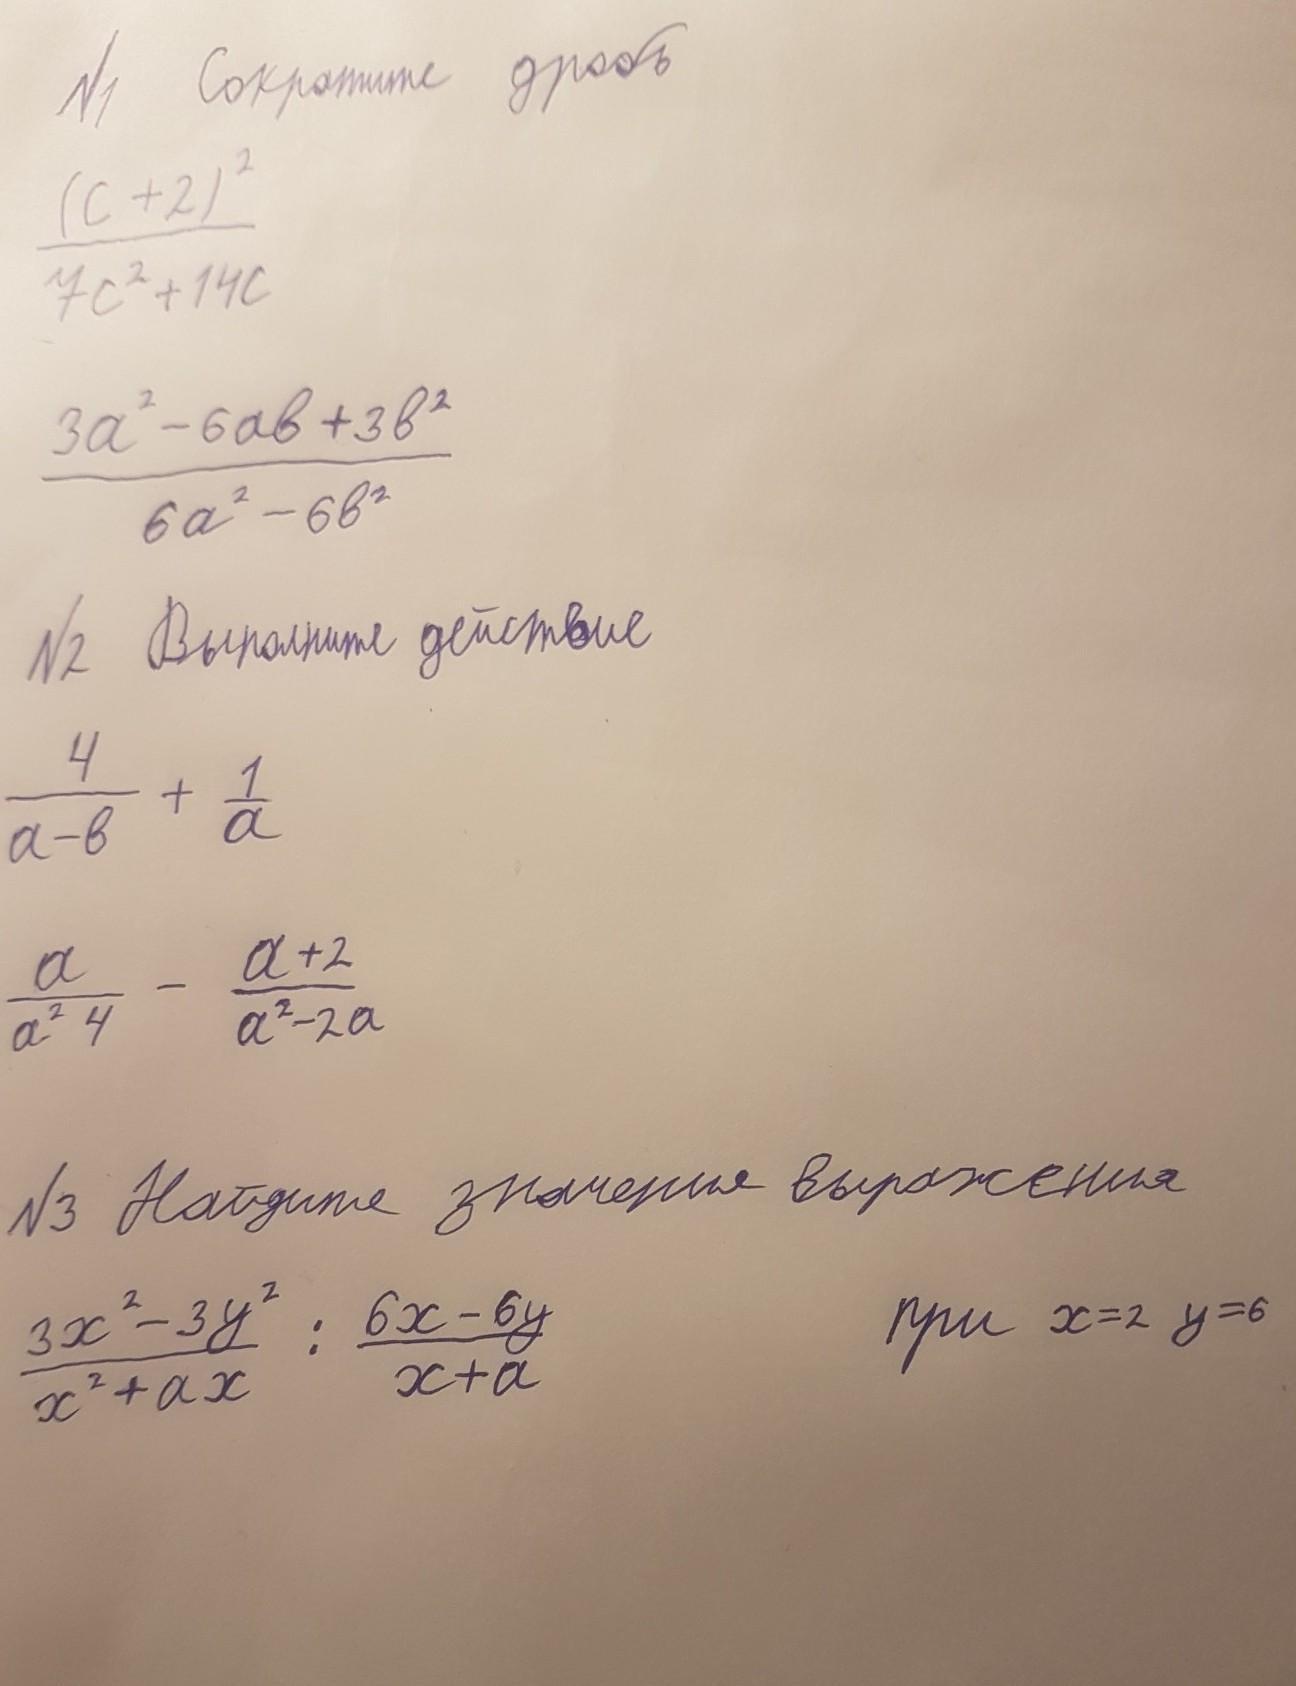 N1 Сократите дробь
(c+2)²
7c²+14c
3a²-6ab+3b²
6a²-6b²
N2 Выполните действие
4/(a-b) + 1/a
a/(a² 4) - (a+2)/(a²-2a)
N3 Найдите значения выражения
(3x²-3y²)/(x²+ax) : (6x-6y)/(x+a) при x=2 y=6